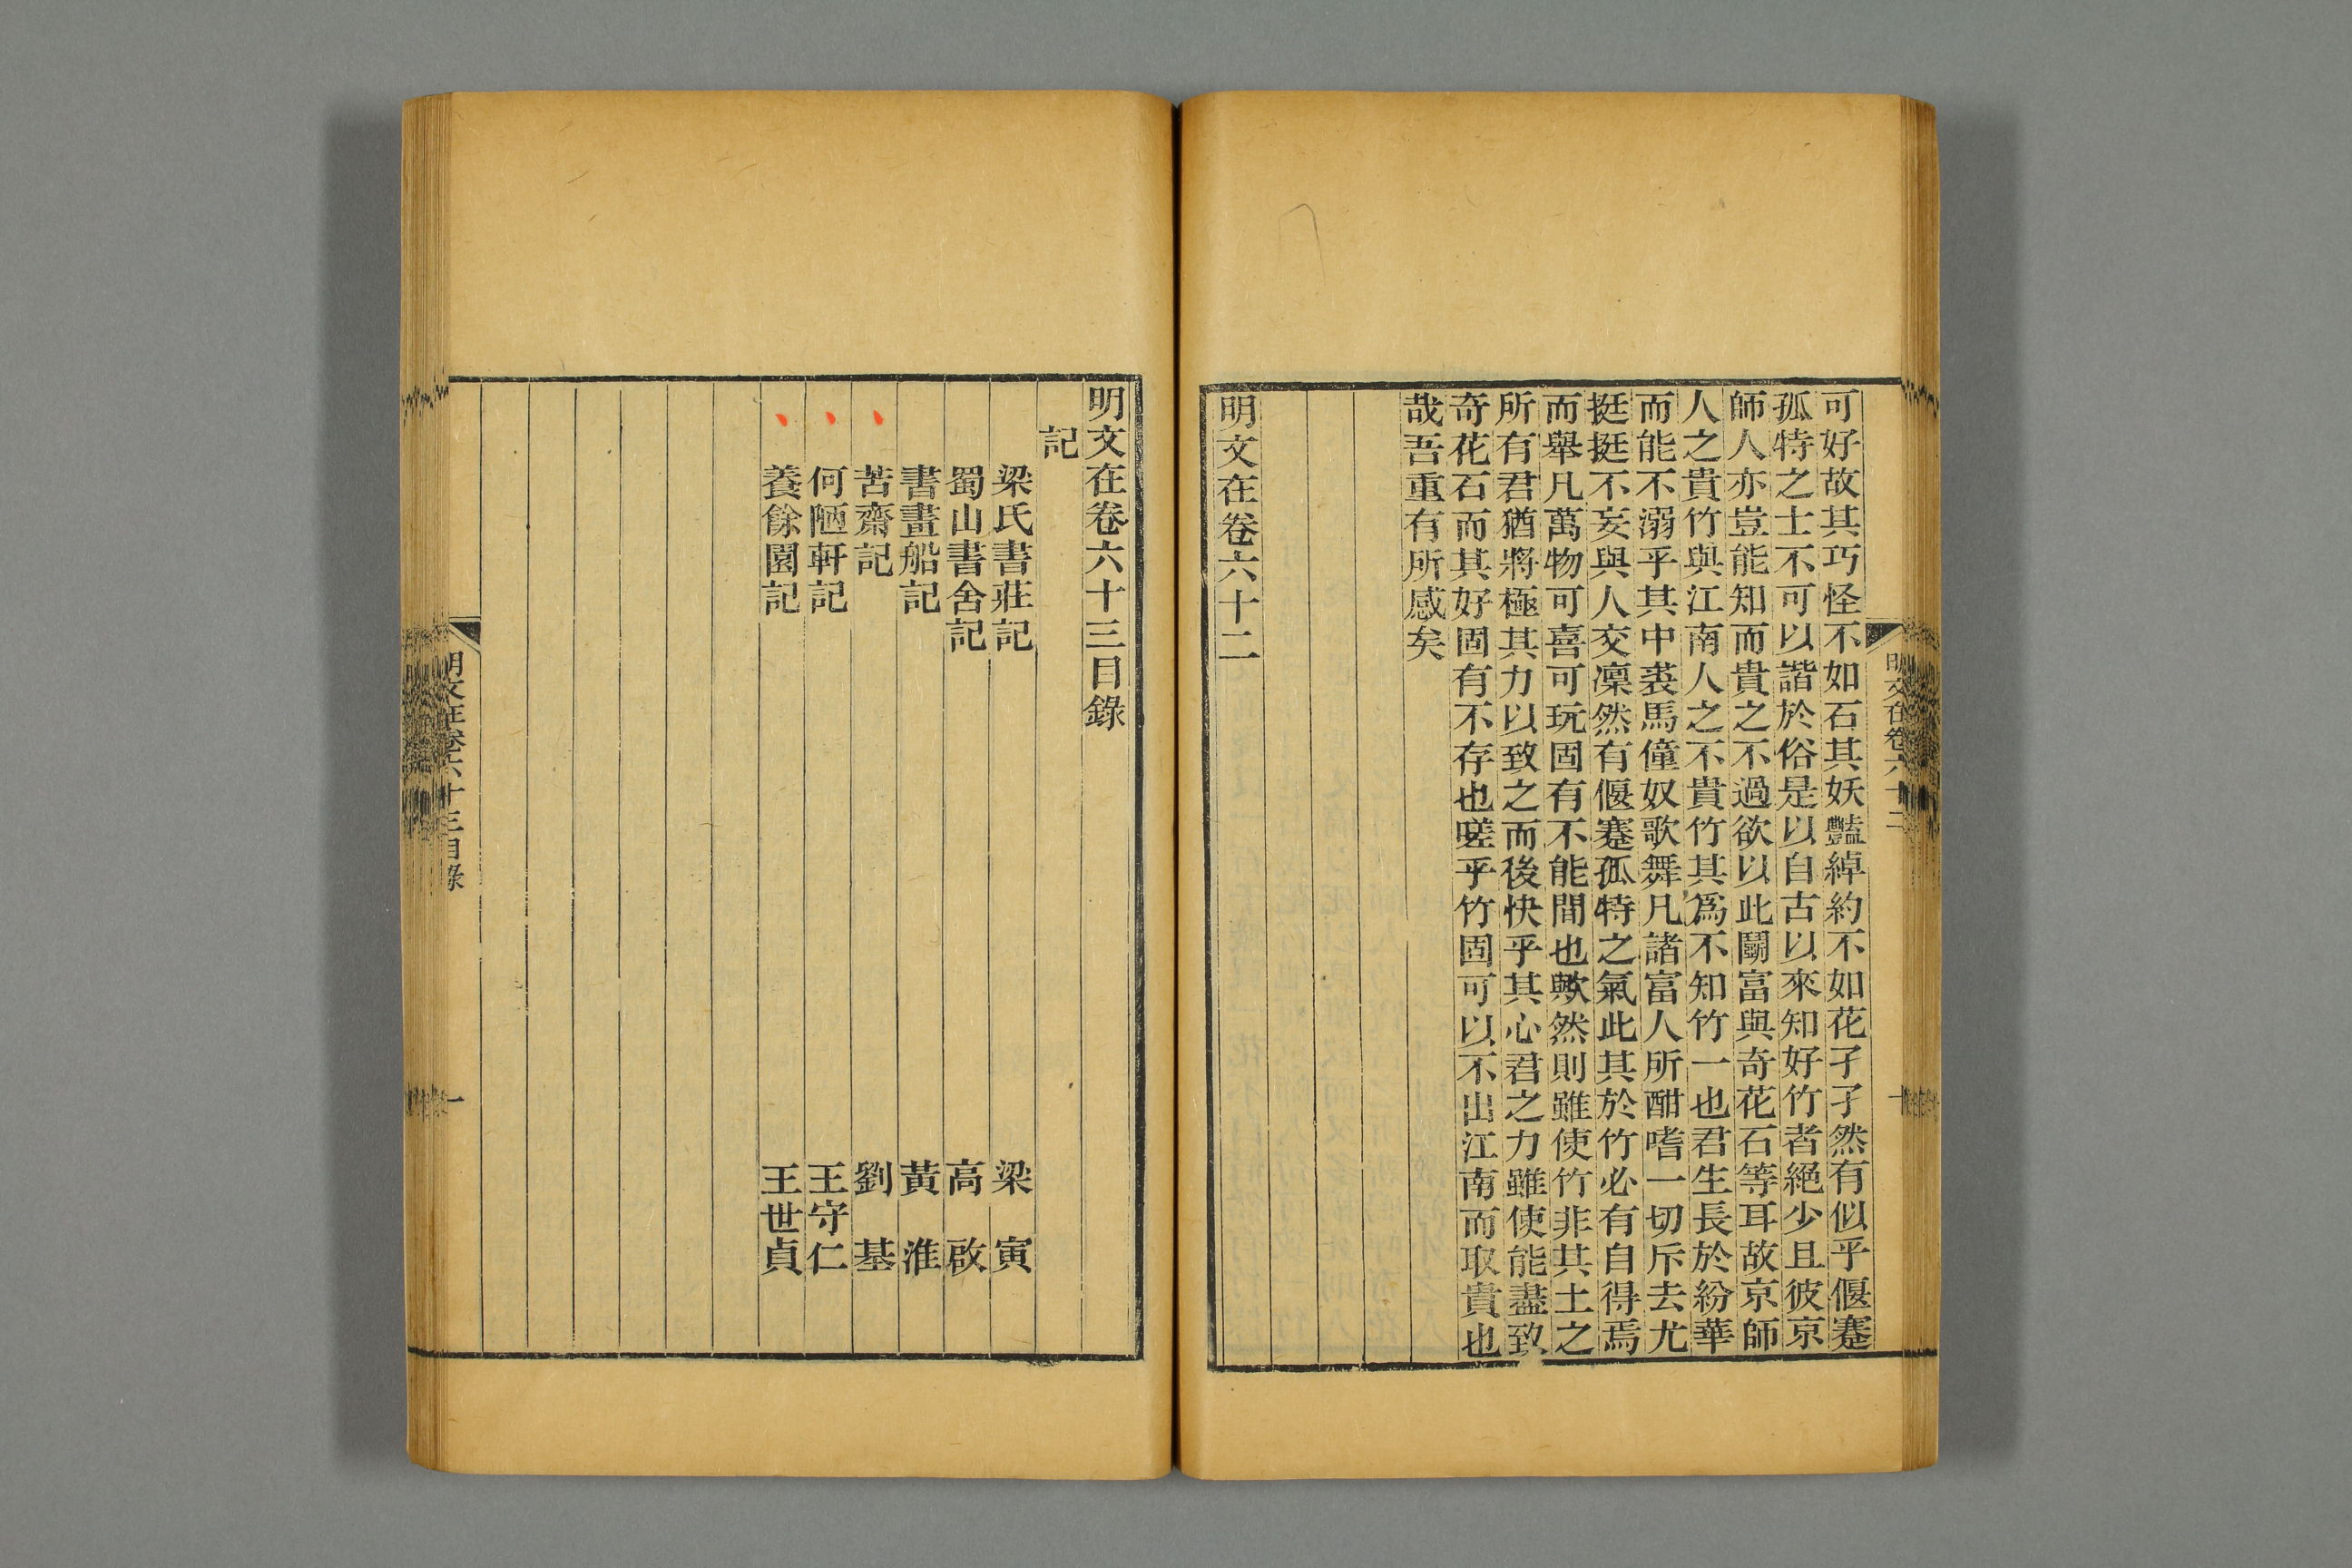 可好故其巧怪不如石其妖豔綽約不如花孑孑然有似乎偃蹇
孤特之士不可以諧於俗是以自古以來知好竹者絕少且彼京
師人亦豈能知而貴之不過欲以此鬭富與奇花石等耳故京師
人之貴竹與江南人之不貴竹其爲不知竹一也君生長於紛華
而能不溺乎其中裘馬僮奴歌舞凡諸富人所酣嗜一切斥去尤
挺挺不妄與人交凜然有偃蹇孤特之氣此其於竹必有自得焉
而舉凡萬物可喜可玩固有不能間也歟然則雖使竹非其土之
所有君猶將極其力以致之而後快乎其心君之力雖使能盡致
奇花石而其好固有不存也嗟乎竹固可以不出江南而取貴也
哉吾重有所感矣
明文在卷六十二
明文在卷六十二
明文在卷六十三目錄
記
梁氏書莊記 梁寅
蜀山書舍記 高啟
書畫船記 黃淮
苦齋記 劉基
何陋軒記 王守仁
養餘園記 王世貞
明文在卷六十三目錄
一